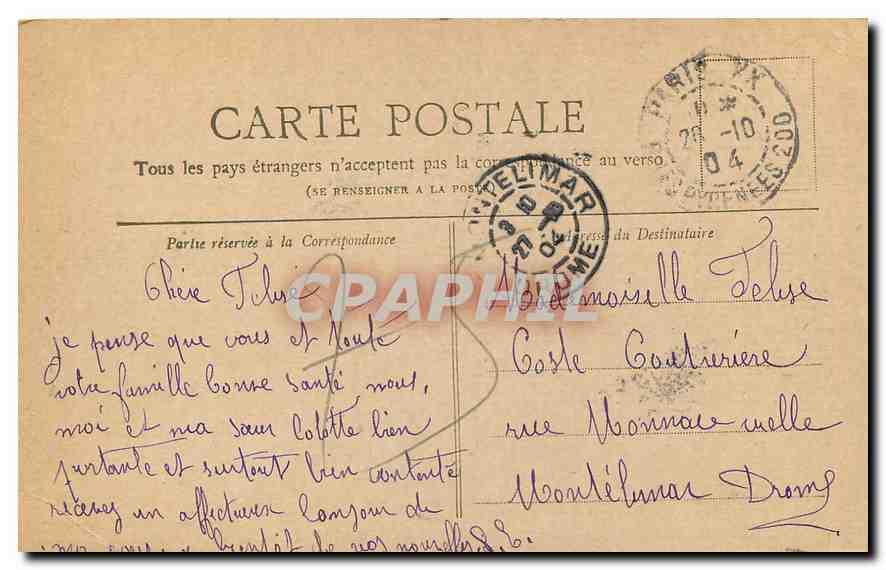 CARTE POSTALE
Tous les pays étrangers n'acceptent pas la correspondance au verso
(SE RENSEIGNER A LA POSTE)
PARIS
26 -10
04
PYRENEES 200
MONTELIMAR
27 10
04
DROME
Partie réservée à la Correspondance
Adresse du Destinataire
CPAPHIL
Chère Felise
je pense que vous et toute
votre famille bonne santé, nous,
moi et ma sœur Colette bien
portante et surtout bien contente
recevez un affectueux bonjour de
bientôt de vos nouvelles
Mademoiselle Felise
Coste Couturière
rue Monnaie vielle
Montélimar Drome